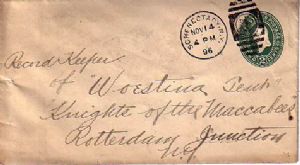 SCHENECTADY, N.Y.
NOV 14
4 PM
96
Record Keeper
of "Woestina Tent"
Knights of the Maccabees
Rotterdam Junction
N.Y.